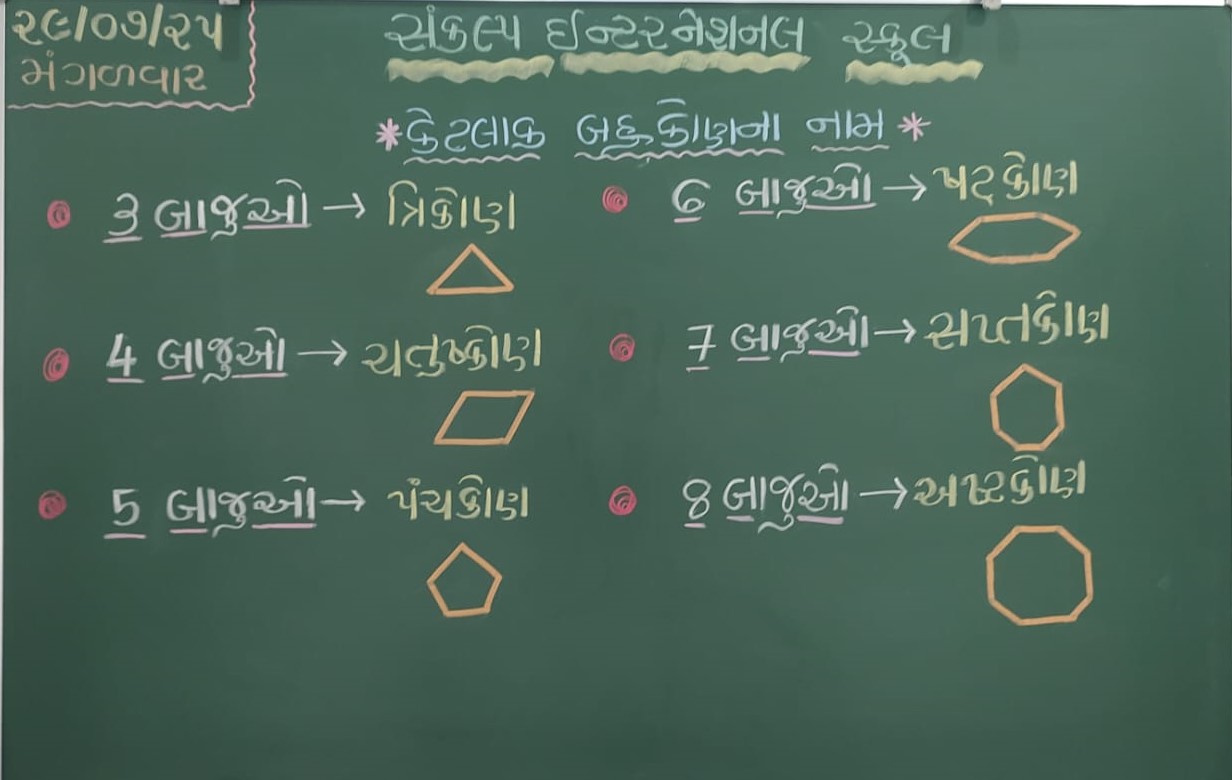 ૨૯/૦૭/૨૫
મંગળવાર
સંકલ્પ ઇન્ટરનેશનલ સ્કૂલ
*કેટલાક બહુકોણના નામ*
3 બાજુઓ → ત્રિકોણ
4 બાજુઓ → ચતુષ્કોણ
5 બાજુઓ → પંચકોણ
6 બાજુઓ → ષટ્કોણ
7 બાજુઓ → સપ્તકોણ
8 બાજુઓ → અષ્ટકોણ